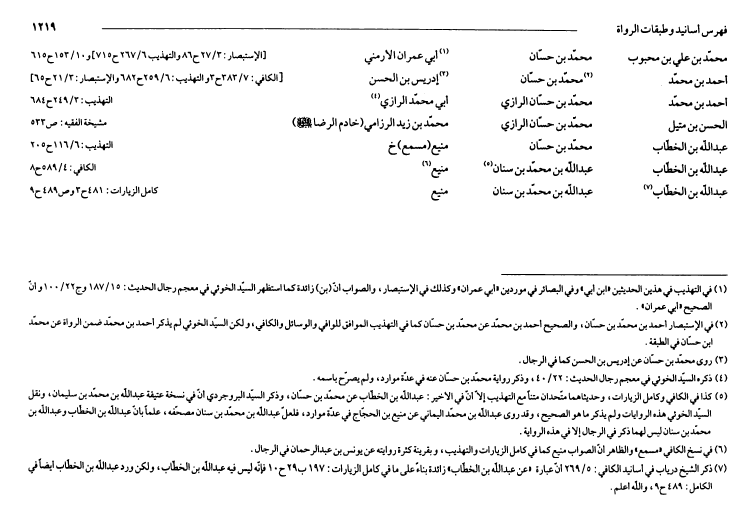 فهرس أسانيد وطبقات الرواة ١٢١٩
محمّد بن علي بن محبوب محمّد بن حسّان (١) أبي عمران الأرمني [الإستبصار: ٢٧/٣ح٨٦ والتهذيب ٢٦٧/٦ح٧١٥] و١٥٣/١٠ح٦١٥
أحمد بن محمّد (٢) محمّد بن حسّان (٣) إدريس بن الحسن [الكافي: ٣٨٣/٧ح٣ والتهذيب: ٢٥٩/٦ح٦٨٢ والإستبصار: ٢١/٣ح٦٥]
أحمد بن محمّد محمّد بن حسّان الرازي أبي محمّد الرازي (٤) التهذيب: ٢٤٩/٣ح٦٨٤
الحسن بن متيل محمّد بن حسّان الرازي محمّد بن زيد الرزامي (خادم الرضا ﷺ) مشيخة الفقيه: ص٥٣٣
عبدالله بن الخطّاب محمّد بن حسّان منيع (مسمع) خ التهذيب: ١١٦/٦ح٢٠٥
عبدالله بن الخطّاب عبدالله بن محمّد بن سنان (٥) منيع (٦) الكافي: ٥٨٩/٤ح٨
عبدالله بن الخطّاب (٧) عبدالله بن محمّد بن سنان منيع كامل الزيارات: ٤٨١ح٣ وص٤٨٩ح٩
(١) في التهذيب في هذين الحديثين «ابن أبي» وفي البصائر في موردين «أبي عمران» وكذلك في الإستبصار، والصواب انّ (بن) زائدة كما استظهر السيّد الخوئي في معجم رجال الحديث: ١٨٧/١٥ وج١٠٠/٢٢ و انّ
الصحيح «أبي عمران».
(٢) في الإستبصار أحمد بن محمّد بن حسّان، والصحيح أحمد بن محمّد عن محمّد بن حسّان كما في التهذيب الموافق للوافي والوسائل والكافي، ولكن السيّد الخوئي لم يذكر أحمد بن محمّد ضمن الرواة عن محمّد
ابن حسّان في الطبقة.
(٣) روى محمّد بن حسّان عن إدريس بن الحسن كما في الرجال.
(٤) ذكره السيّد الخوئي في معجم رجال الحديث: ٤٠/٢٢، وذكر رواية محمّد بن حسّان عنه في عدّة موارد، ولم يصرّح باسمه.
(٥) كذا في الكافي وكامل الزيارات، وحديثاهما متّحدان متناً مع التهذيب إلاّ انّ في الاخير: عبدالله بن الخطّاب عن محمّد بن حسّان، وذكر السيّد البروجردي انّ في نسخة عتيقة عبدالله بن محمّد بن سليمان، ونقل
السيّد الخوئي هذه الروايات ولم يذكر ما هو الصحيح، وقد روى عبدالله بن محمّد اليماني عن منيع بن الحجّاج في عدّة موارد، فلعلّ عبدالله بن محمّد بن سنان مصحّفه، علماً بانّ عبدالله بن الخطّاب وعبدالله بن
محمّد بن سنان ليس لهما ذكر في الرجال إلا في هذه الرواية.
(٦) في نسخ الكافي «مسمع» والظاهر انّ الصواب منيع كما في كامل الزيارات والتهذيب، و بقرينة كثرة روايته عن يونس بن عبدالرحمان في الرجال.
(٧) ذكر الشيخ درياب في أسانيد الكافي: ٢٦٩/٥ انّ عبارة «عن عبدالله بن الخطّاب» زائدة بناءً على ما في كامل الزيارات: ١٩٧ ب٢٩ح١٠ فإنّه ليس فيه عبدالله بن الخطّاب، ولكن ورد عبدالله بن الخطّاب أيضاً في
الكامل: ٤٨٩ح٩، والله أعلم.